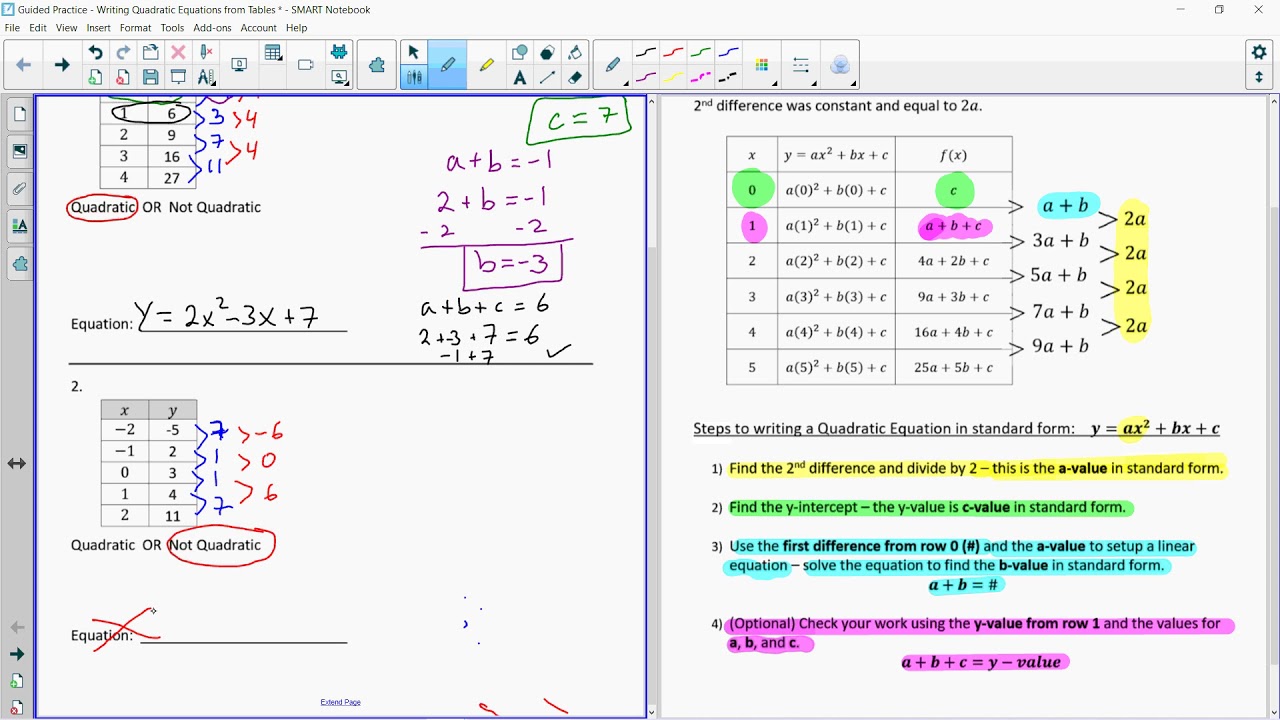 Guided Practice - Writing Quadratic Equations from Tables * - SMART Notebook
File Edit View Insert Format Tools Add-ons Account Help
1 6
2 9
3 16
4 27
3
7
11
4
4
Quadratic OR Not Quadratic
c = 7
a + b = -1
2 + b = -1
-2 -2
b = -3
a + b + c = 6
2 + -3 + 7 = 6
-1 + 7 ✓
Equation: Y = 2x² - 3x + 7
2.
x y
−2 -5
−1 2
0 3
1 4
2 11
7
1
1
7
-6
0
6
Quadratic OR Not Quadratic
Equation:
Extend Page
2nd difference was constant and equal to 2a.
x y = ax² + bx + c f(x)
0 a(0)² + b(0) + c c
1 a(1)² + b(1) + c a + b + c
2 a(2)² + b(2) + c 4a + 2b + c
3 a(3)² + b(3) + c 9a + 3b + c
4 a(4)² + b(4) + c 16a + 4b + c
5 a(5)² + b(5) + c 25a + 5b + c
a + b
3a + b
5a + b
7a + b
9a + b
2a
2a
2a
2a
Steps to writing a Quadratic Equation in standard form: y = ax² + bx + c
1) Find the 2nd difference and divide by 2 – this is the a-value in standard form.
2) Find the y-intercept – the y-value is c-value in standard form.
3) Use the first difference from row 0 (#) and the a-value to setup a linear
equation – solve the equation to find the b-value in standard form.
a + b = #
4) (Optional) Check your work using the y-value from row 1 and the values for
a, b, and c.
a + b + c = y − value